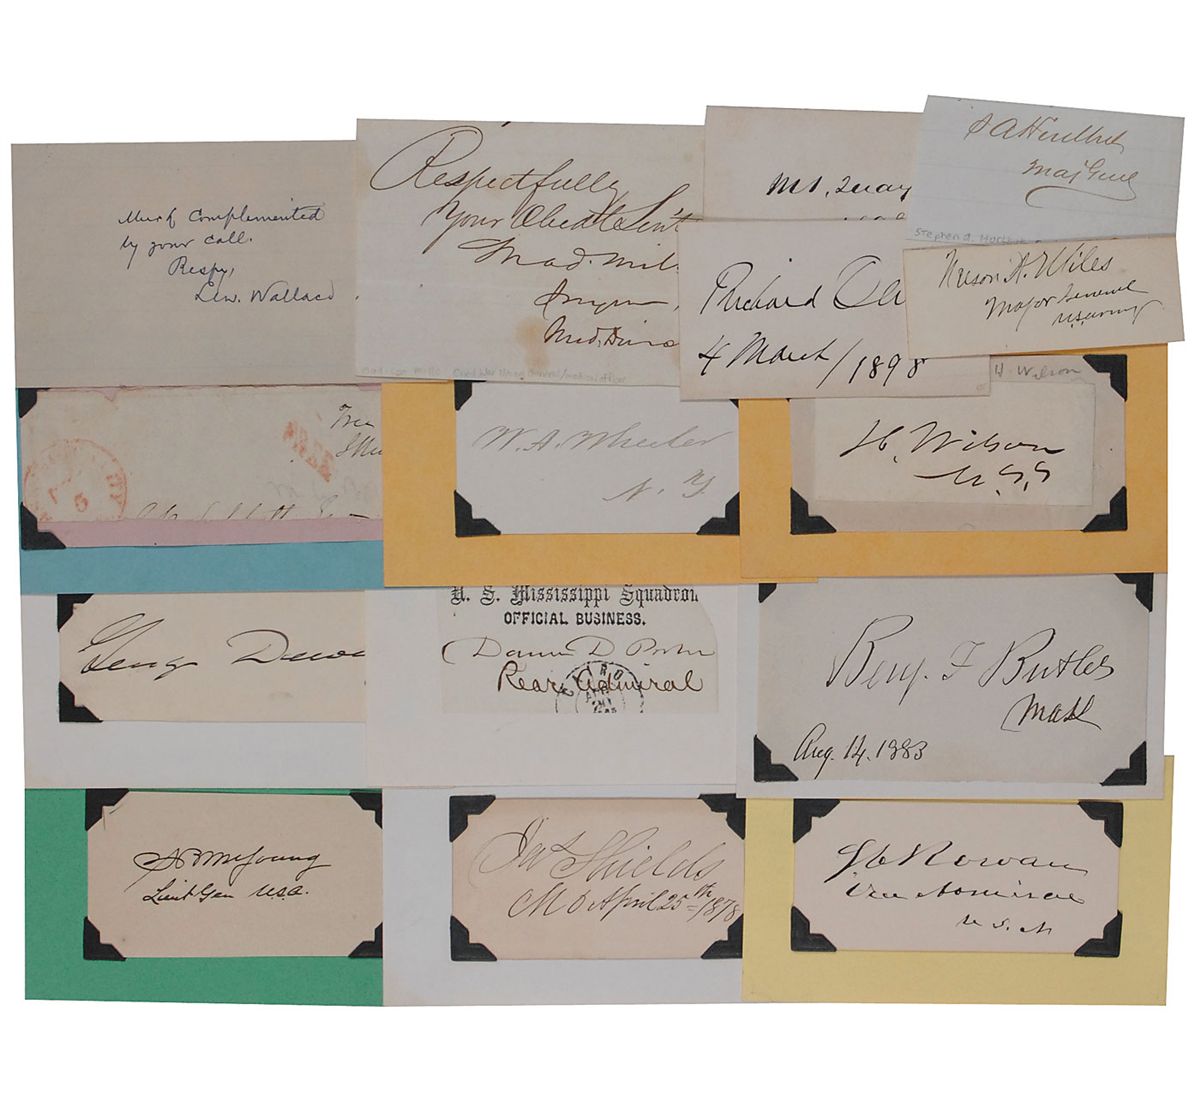 Much Complemented
by your call.
Respy,
Lew. Wallace
Respectfully
Your Obedt Servt
Mad. Mil
Surgeon,
Med. Direc
M. S. Quay
S A Hurlbut
Maj Genl
Stephen A. Hurlbut
Nelson A. Miles
Major General
US Army
Richard Ol
4 March / 1898
H. Wilson
FREE
5
W. A. Wheeler
N. Y.
H. Wilson
U. S. S
George Dewe
U. S. Mississippi Squadron
OFFICIAL BUSINESS.
David D Porter
Rear Admiral
CAIRO
Benj. F Butler
Mass
Aug. 14. 1883
S B M Young
Lieut Gen USA.
Jas Shields
Mo April 25th 1878
S C Rowan
Vice Admiral
U. S. N